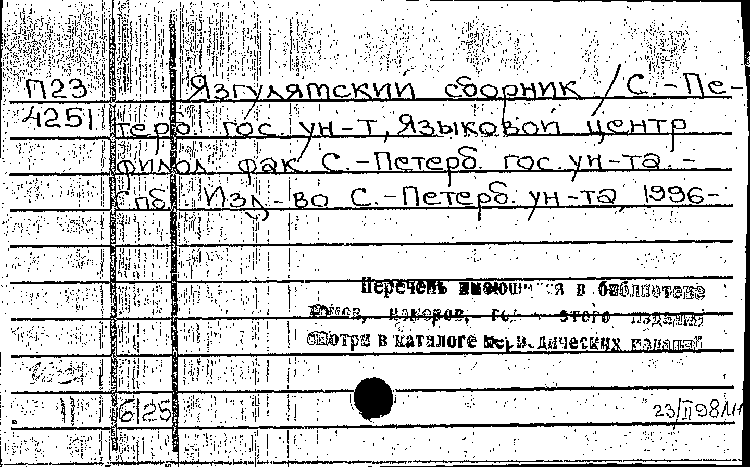 П23 Язгулятский сборник / С.-Пе-
4251 терб. гос. ун-т, Языковой центр
филол. фак. С.-Петерб. гос. ун-та. -
Спб. Изд-во С.-Петерб. ун-та, 1996-
Перечень в библиотеке
томов, номеров, этого издания
смотри в каталоге периодических изданий
11 6125 23/II 98